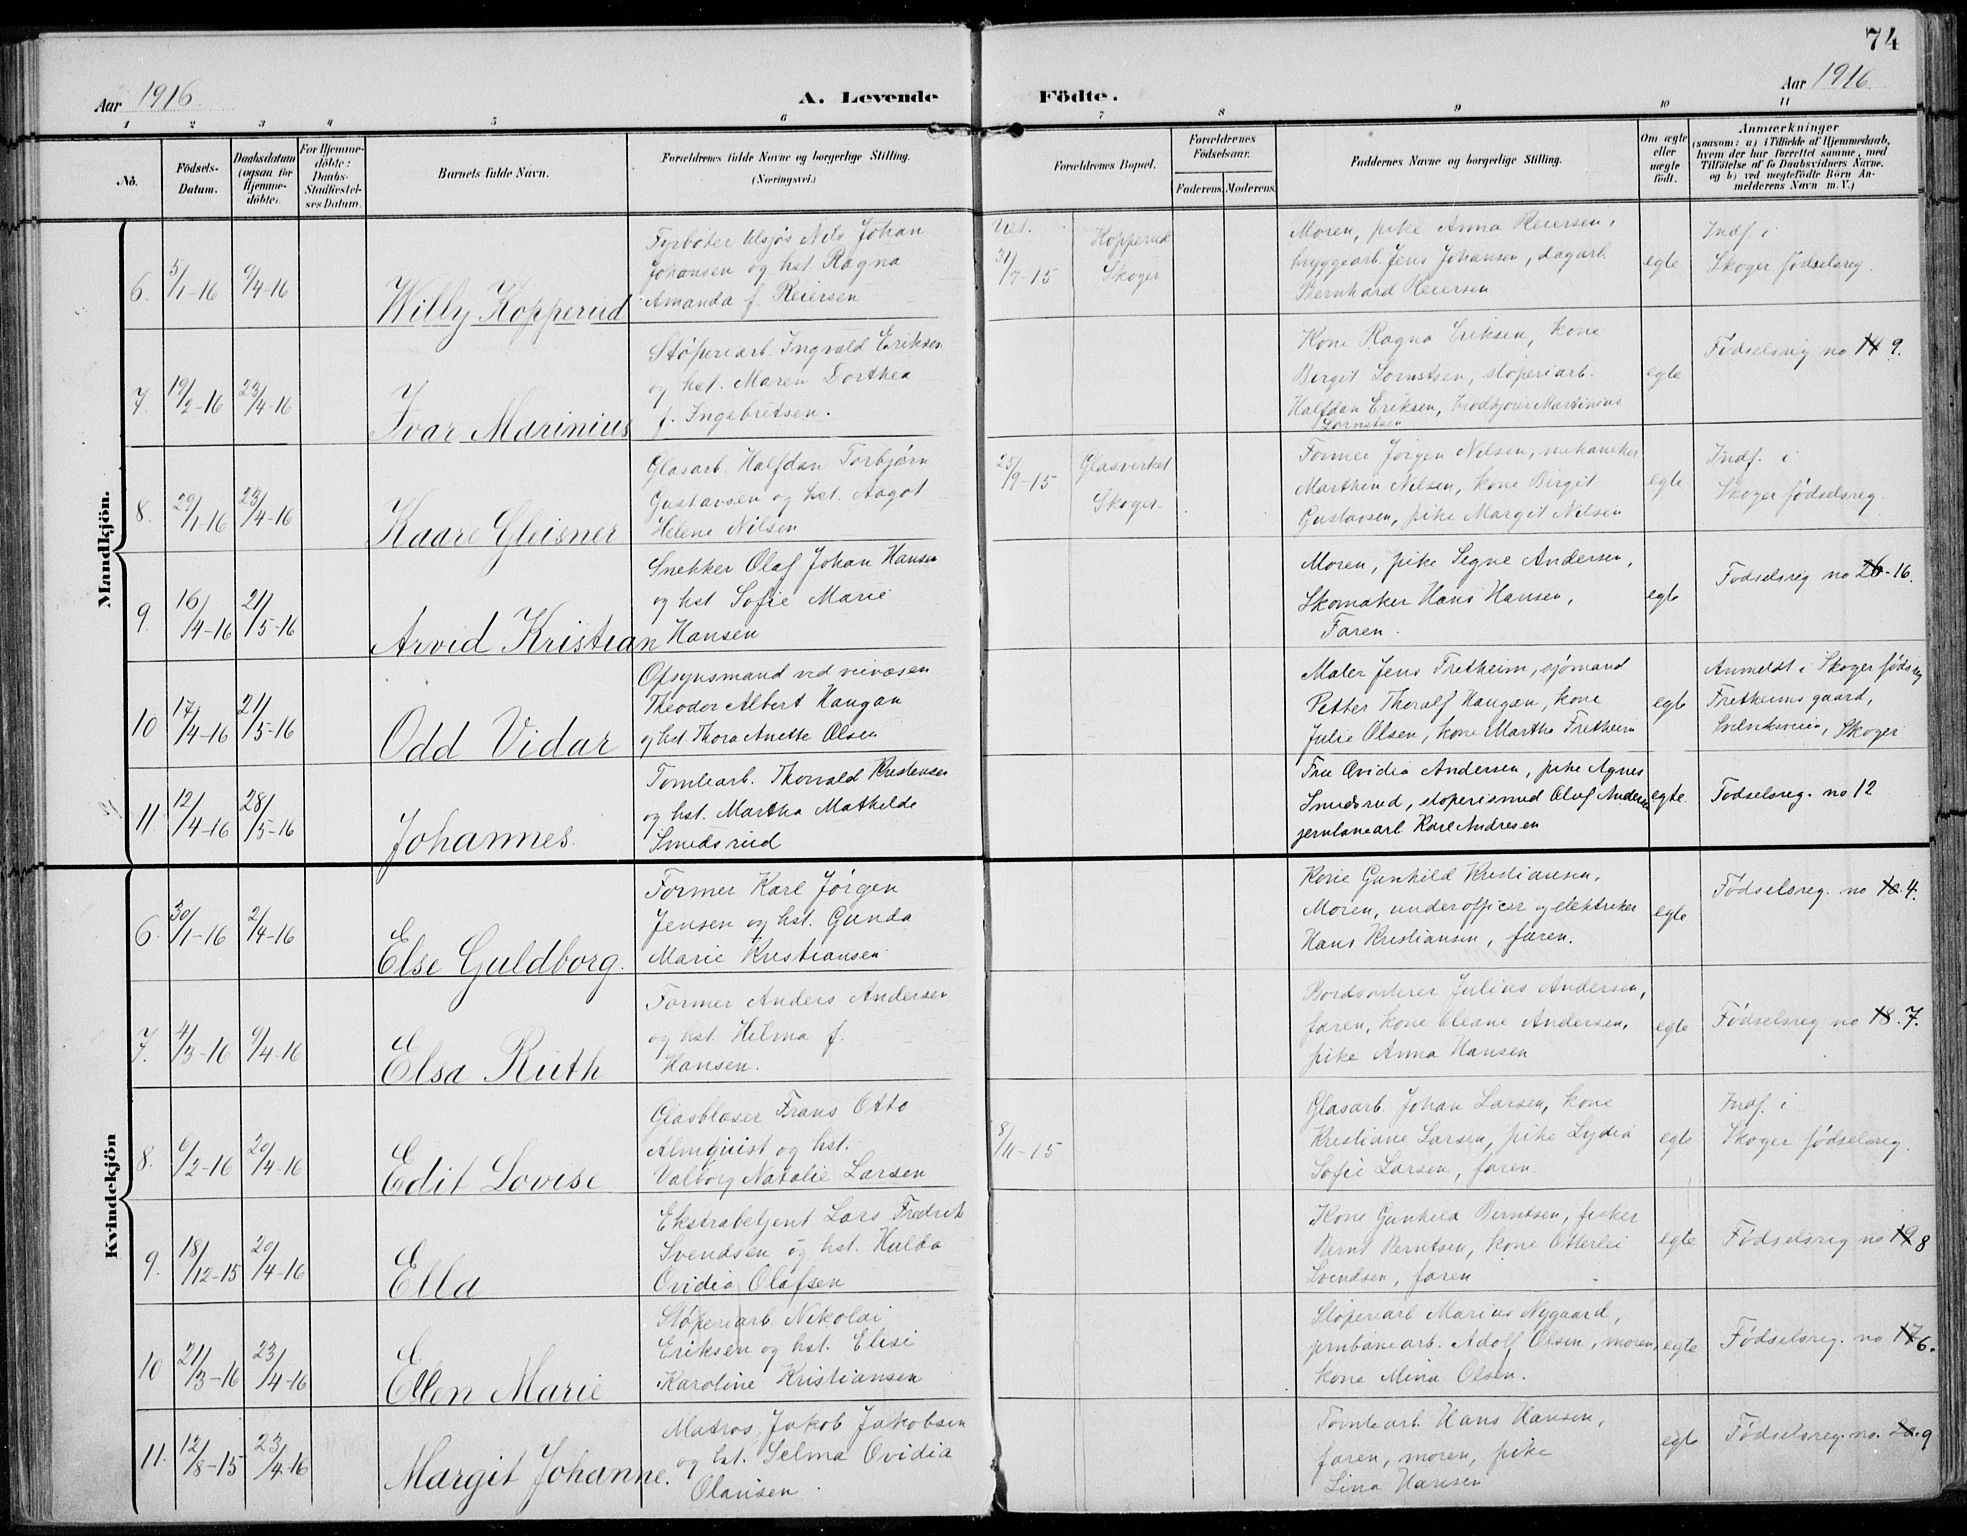 74
Aar 1916.
A. Levende Födte.
Aar 1916
1 2 3 4 5 6 7 8 9 10 11
No.
Födsels-
Datum.
Daabsdatum
(ogsaa for
Hjemme-
döbte).
For Hjemme-
döbte:
Daabs-
Stadfæstel-
ses Datum.
Barnets fulde Navn.
Forældrenes fulde Navne og borgerlige Stilling.
(Næringsvei.)
Forældrenes Bopæl.
Forældrenes
Födselsaar.
Faderens. Moderens.
Faddernes Navne og borgerlige Stilling.
Om ægte
eller
uægte
født.
Anmærkninger
(saasom: a) i Tilfælde af Hjemmedaab,
hvem der har forrettet samme, med
Tilföielse af to Daabsvidners Navne.
og b) ved uegtefödte Börn An-
melderens Navn m. V.)
Mandkjön.
6. 5/1-16 9/4-16 Willy Kopperud
Fyrbøter tilsjøs Nils Johan
Johansen og hst. Ragna
Amanda f. Reiersen
31/7-15
Kopperud
Skoger
Moren, pike Anna Reiersen,
bryggearb. Jens Johansen, dagarb.
Bernhard Reiersen
egte
Indf. i
Skoger fødselsreg.
7. 19/2-16 23/4-16 Ivar Marinius
Støperiarb. Ingvald Eriksen
og hst. Maren Dorthea
f. Ingebretsen.
Kone Ragna Eriksen, kone
Birgit Lorntsen, støperiarb.
Halfdan Eriksen, brødkjører Martinius
Lorntsen
egte
Fødselsreg no 14 9.
8. 29/1-16 23/4-16 Kaare Gleisner
Glasarb. Halfdan Torbjørn
Gustavsen og hst. Aagot
Helene Nilsen
25/9-15
Glasverket
Skoger
Former Jørgen Nilsen, mekaniker
Marthin Nilsen, kone Birgit
Gustavsen, pike Margit Nilsen
egte
Indf. i
Skoger fødselsreg.
9. 16/4-16 21/5-16 Arvid Kristian
Snekker Olaf Johan Hansen
og hst Sofie Marie
Hansen
Moren, pike Segne Andersen,
Skomaker Hans Hansen,
Faren.
egte
Fødselsreg no 26-16.
10 17/4-16 21/5-16 Odd Vidar
Opsynsmand ved veivæsen
Theodor Albert Haugan
og hst Thora Anette Olsen
Maler Jens Fretheim, sjømand
Petter Thoralf Haugan, kone
Julie Olsen, kone Martha Fretheim
egte
Anmeldt i Skoger fødsreg
Fretheims gaard,
Svelviksveien, Skoger
11 12/4-16 28/5-16 Johannes.
Tomtearb. Thorvald Kristensen
og hst. Martha Mathilde
Smedsrud
Fru Ovidia Andersen, pike Agnes
Smedsrud, støperismed Oluf Andersen
jernbanearb. Karl Andresen
egte.
Fødselsreg. no 12
Kvindekjön
6. 30/1-16 2/4-16 Else Guldborg.
Former Karl Jørgen
Jensen og hst. Gunda
Marie Kristiansen
Kone Gunhild Kristiansen,
Moren, underofficer og elektriker
Hans Kristiansen, faren.
egte
Fødselsreg. no 10. 4.
7. 4/3-16 9/4-16 Elsa Ruth
Former Anders Andersen
og hst. Hilma f.
Hansen.
Bordsorterer Julius Andersen,
faren, kone Oleane Andersen,
pike Anna Hansen
egte
Fødselsreg no 18. 7.
8. 6/2-16 20/4-16 Edit Lovise
Glasblaser Frans Otto
Almquist og hst.
Valborg Natalie Larsen
8/11-15
Glasarb. Johan Larsen, kone
Kristiane Larsen, pike Lydia
Sofie Larsen, faren.
egte
Indf. i
Skoger fødselsreg.
9. 18/12-15 20/4-16 Ella
Ekstrabetjent Lars Fredrik
Svendsen og hst. Hulda
Ovidia Olafsen
Kone Gunhild Berntsen, fisker
Bernt Berntsen, kone Otterlei
Svendsen, faren
egte
Fødselsreg no 19 8
10 21/3-16 23/4-16 Ellen Marie
Støperiarb. Nikolai
Eriksen og hst. Elise
Karoline Kristiansen
Støperiarb Marius Nygaard,
jernbanearb. Adolf Olsen, moren,
kone Mina Olsen.
egte
Fødselsreg. no 17 6.
11. 12/8-15 23/4-16 Margit Johanne.
Matros Jakob Jakobsen
og hst. Selma Ovidia
Olausen
Tomtearb Hans Hansen,
faren, moren, pike
Lina Hansen
egte
Fødselsreg. no. 20. 9